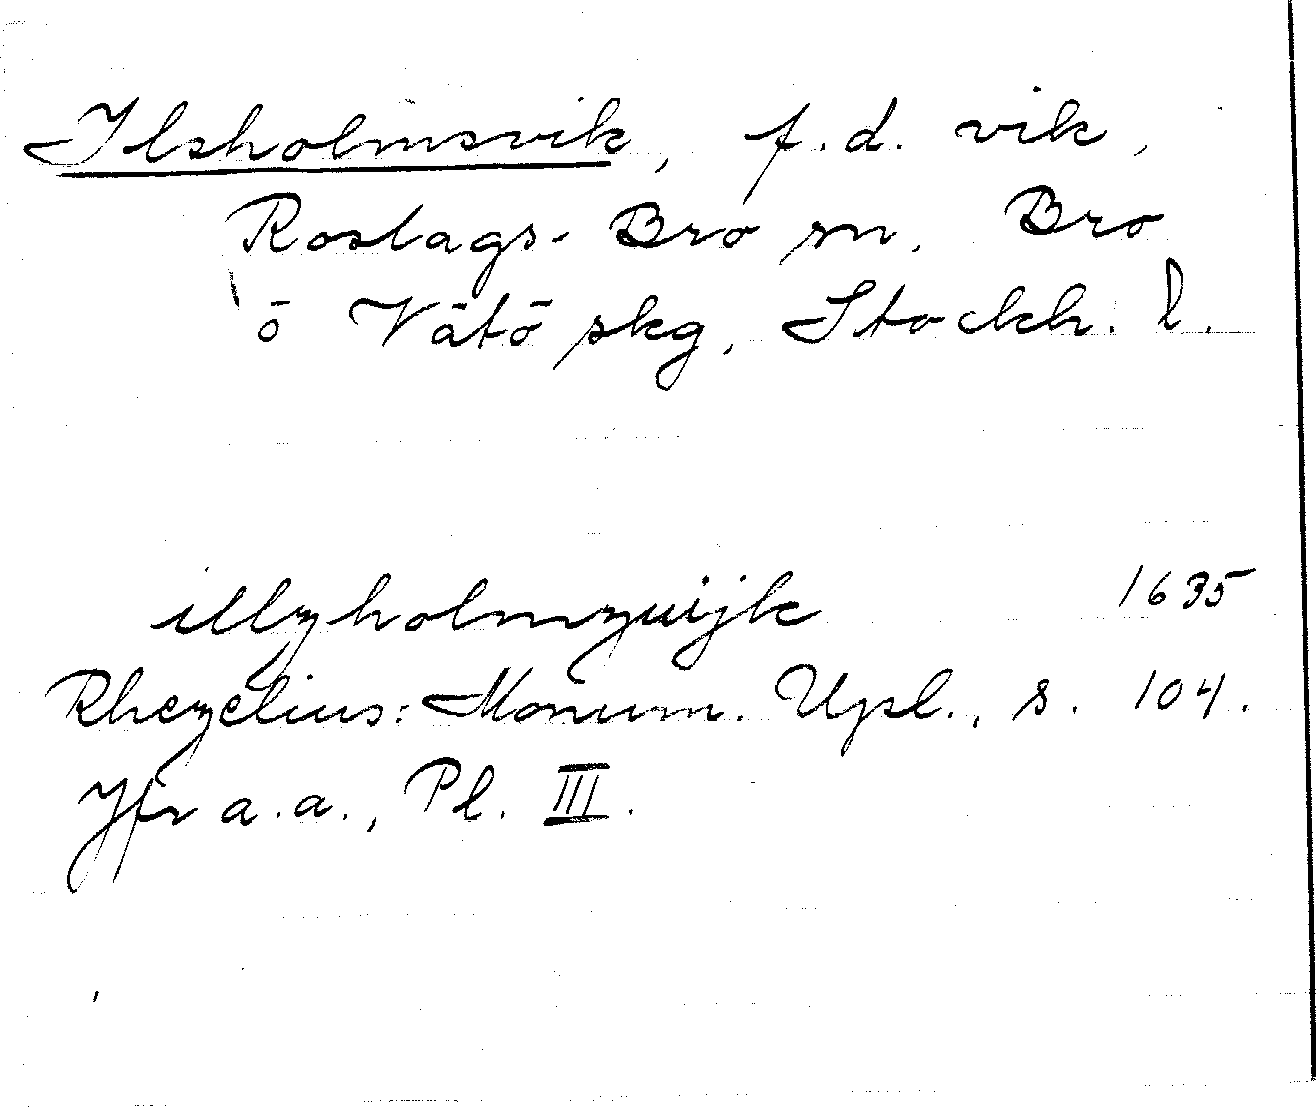 Ilsholmsvik, f.d. vik,
Roslags-Bro sn. Bro
o Vätö skg, Stockh. l.
illzholmzuijk 1635
Rhezelius: Monum. Upl., s. 104.
Jfr a.a., Pl. III.